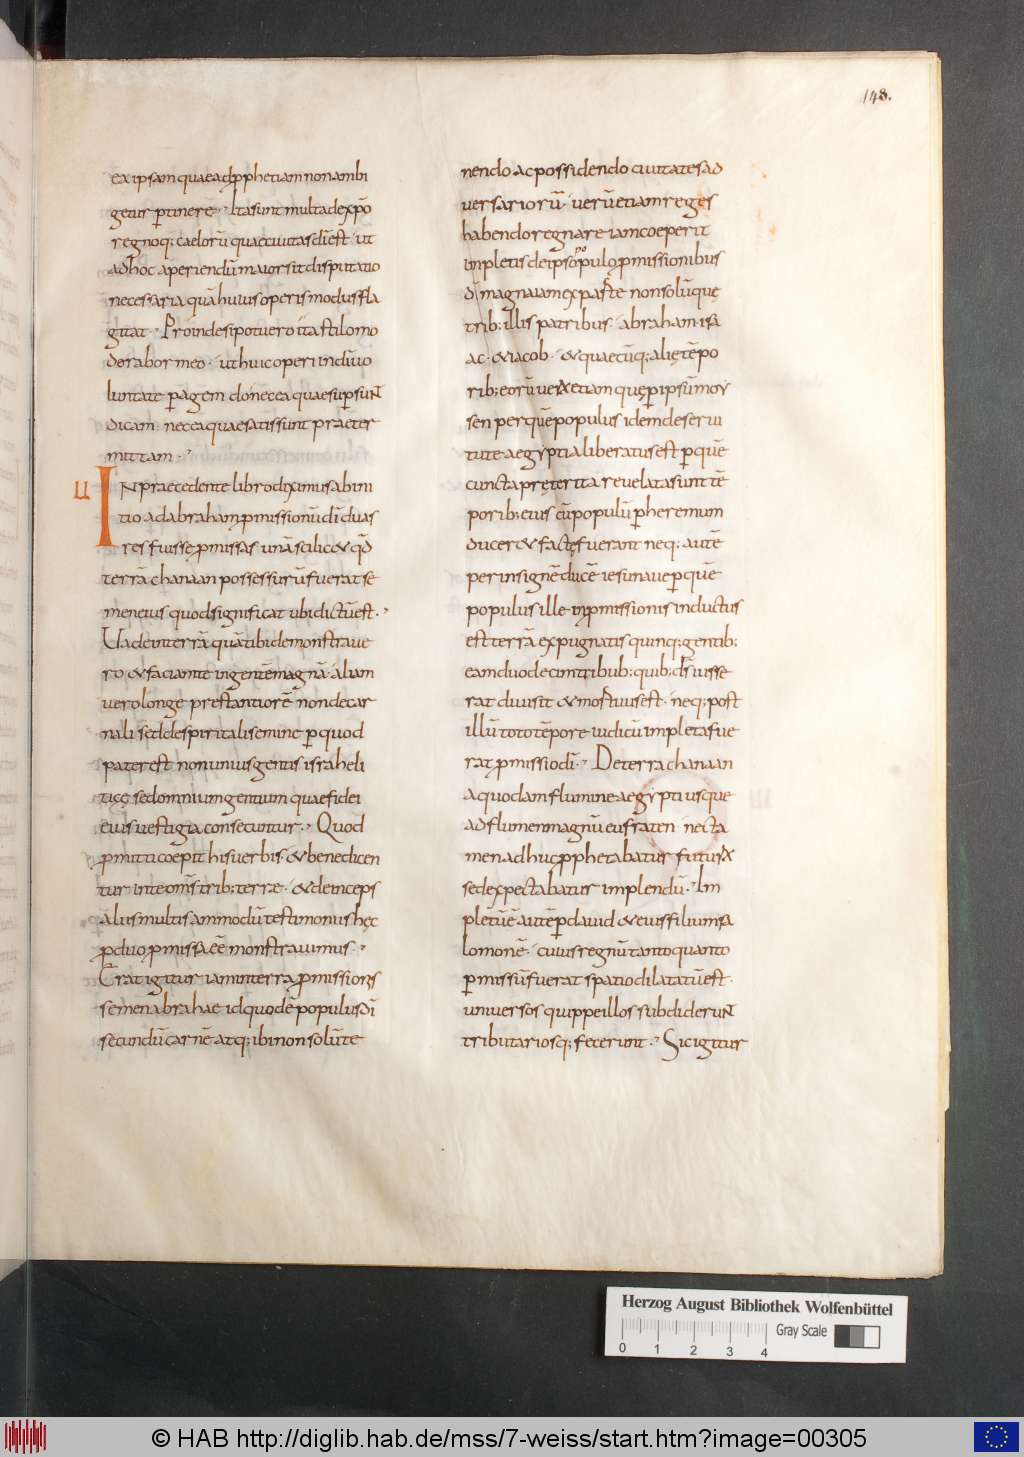 148.
ex ipsam quae ad p̱phetiam non ambi
getur ꝑtinere · Ita sunt multa de xp̄o
regnoq; caeloru᷃ quae ciuitas di᷃ est ut
ad hoc aperiendu᷃ maior sit disputatio
necessaria qua᷃ huius operis modus fla
gitat · Proinde si potuero ita stilo mo
derabor meo · ut huic operi in di᷃ uo
luntate ꝑage᷃m · do nec ea quae suꝑsuNt
dicam · nec ea quae satis sunt praeter
mittam ·
U
IN praecedente libro diximus ab ini
tio ad abraham ꝓmissionu᷃ di᷃ duas
res fuisse ꝓmissas · una᷃ scilic& qđ
terra᷃ chanaan possessuru᷃ fuerat se
men eius quod significat ubi dictu᷃ est ·
Uade in terra᷃ qua᷃ tibi demonstraue
ro & facia᷃ te in gente᷃ magna᷃ · alia᷃
uero longe prestantiore᷃ non de car
nali sed de spiritali semine ꝑ quod
pater est non unius gentis israheli
ticę sed omnium gentium quae fidei
eius uestigia consecuntur · Quod
ꝓmitti coepit his uerbis · & benedicen
tur in te om̄s trib; terrae · & deinceps
aliis multis ammodu᷃ testimoniis hęc
ꝓ duo ꝓmissa ee᷃ monstrauimus ·
Erat igitur iam in terra ꝓmissionis
semen abrahae id quod e᷃ populus di᷃
secundu᷃ carne᷃ atq; ibi non solu᷃ te
nendo ac possidendo ciuitates ad
uersarioru᷃ · ueru᷃ etiam reges
habendo regnare iam coeperit
impletis de ipso populo ꝓmissionibus
di᷃ magna iam ex parte non solu᷃ quę
trib; illis patribus · abraham isa
ac · & iacob · & quaecu᷃q; alię te᷃po
rib; eoru᷃ ueru᷃ etiam quę ꝑ ipsu᷃ moy
sen per que᷃ populus idem de serui
tute aegyptia liberatus est ꝑ que᷃
cuncta pręterita reuelata sunt te᷃
porib; eius cu᷃ populu᷃ ꝑ heremum
ducer& factę fuerant neq; aute᷃
per insigne᷃ duce᷃ iesu naue ꝑ que᷃
populus ille in ꝓmissionis inductus
est terra᷃ expugnatis quinq; gentib;
eam duodecim tribub; quib; ds᷃ iusse
rat diuisit & mostuus est · neq; post
illu᷃ toto te᷃pore iudicu᷃ impleta fue
rat ꝓmissio di᷃ · De terra chanaan
a quodam flumine aegypti usque
ad flumen magnu᷃ eufraten nec ta
men adhuc ꝓphetabatur futuru᷃
sed expectabatur implendu᷃ · Im
pletu᷃ e᷃ aute᷃ ꝑ dauid & eius filium sa
lomone᷃ · cuius regnu᷃ tanto quanto
ꝓmissu᷃ fuerat spatio dilatatu᷃ est ·
uniuersos quippe illos subdideruNt
tributariosq; fecerunt · Sic igitur
Herzog August Bibliothek Wolfenbüttel
0 1 2 3 4
Gray Scale
© HAB http://diglib.hab.de/mss/7-weiss/start.htm?image=00305